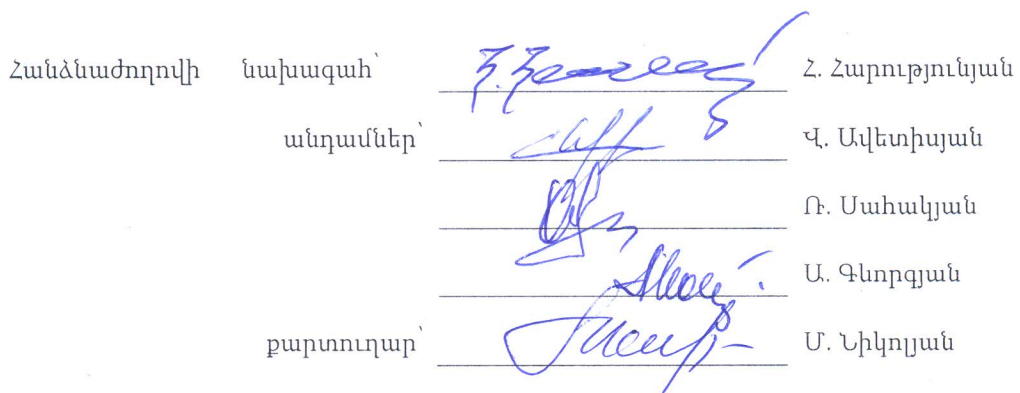 Հանձնաժողովի նախագահ՝ Հ. Հարությունյան
անդամներ՝ Վ. Ավետիսյան
Ռ. Սահակյան
Ա. Գևորգյան
քարտուղար՝ Մ. Նիկոլյան